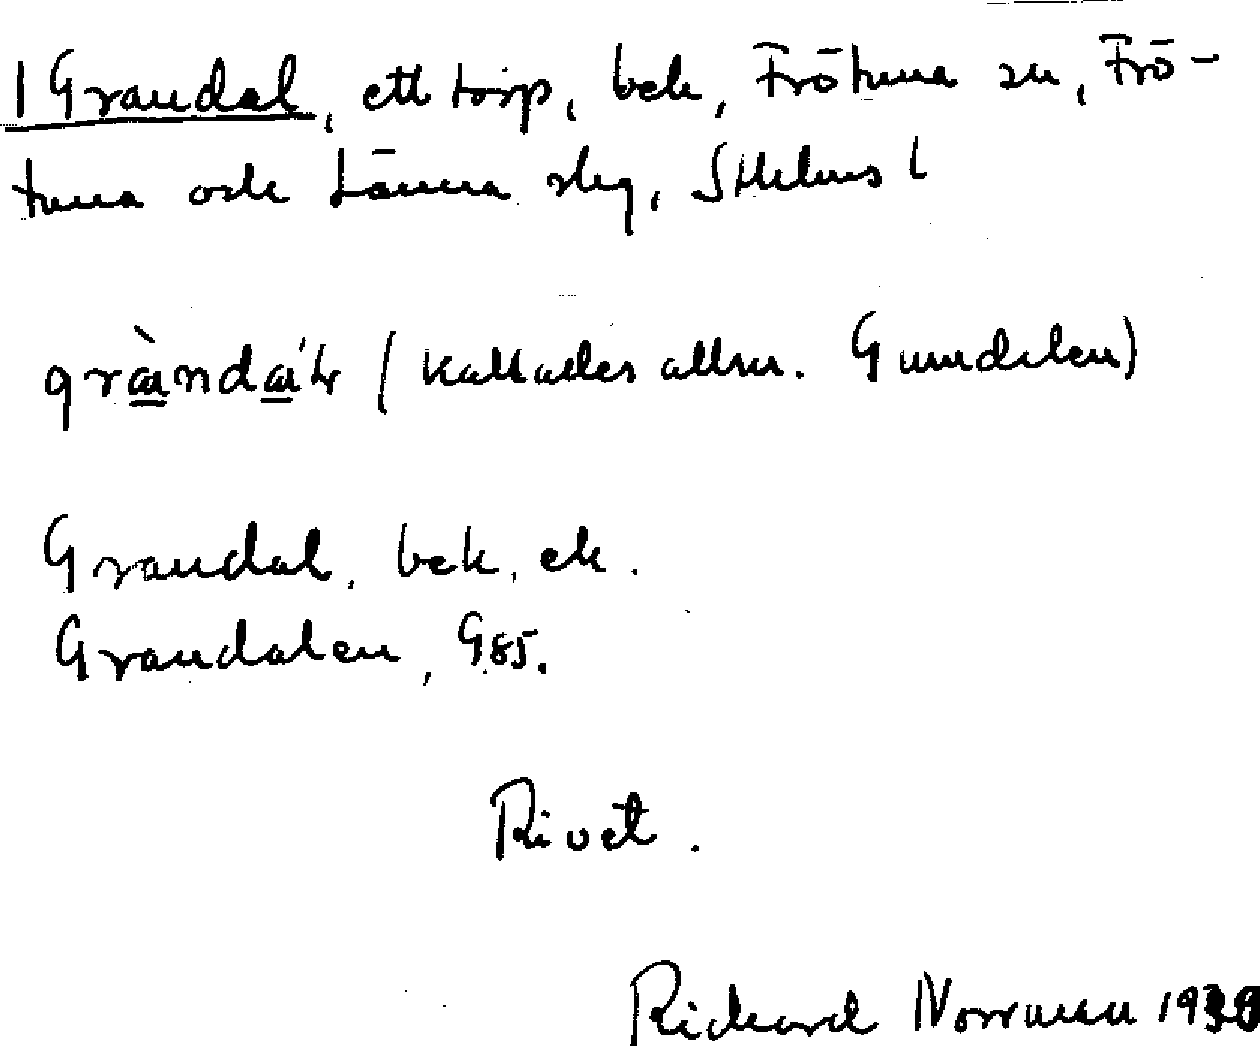 1 Grandal, ett torp, bek, Frötuna sn, Frö-
tuna och Länna slg, Sthlms l
(kallades allm. Grundalen)
Grandal, bek, ek.
Grandalen, G85.
Rivet.
Richard Norrman